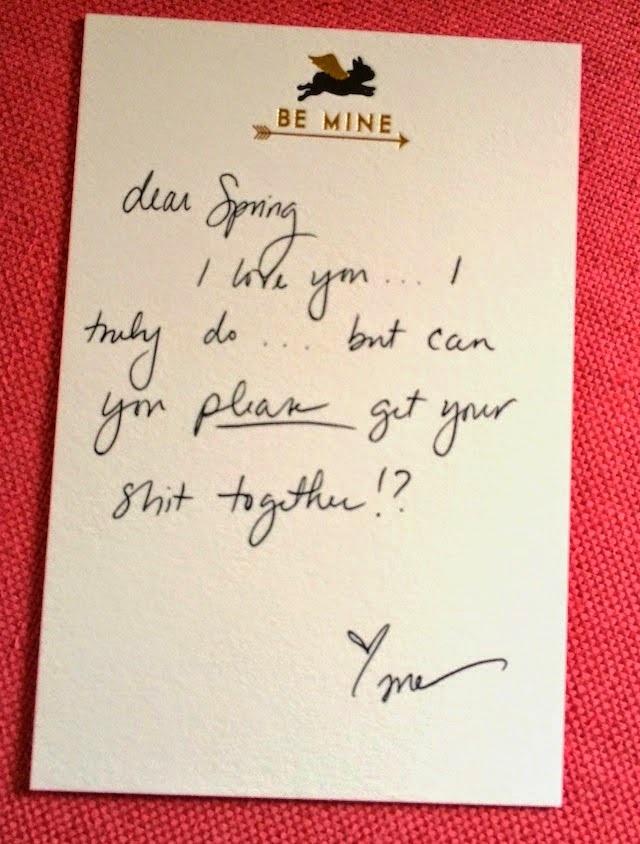 BE MINE
dear Spring
I love you... I
truly do.... but can
you please get your
shit together!?
♡ me